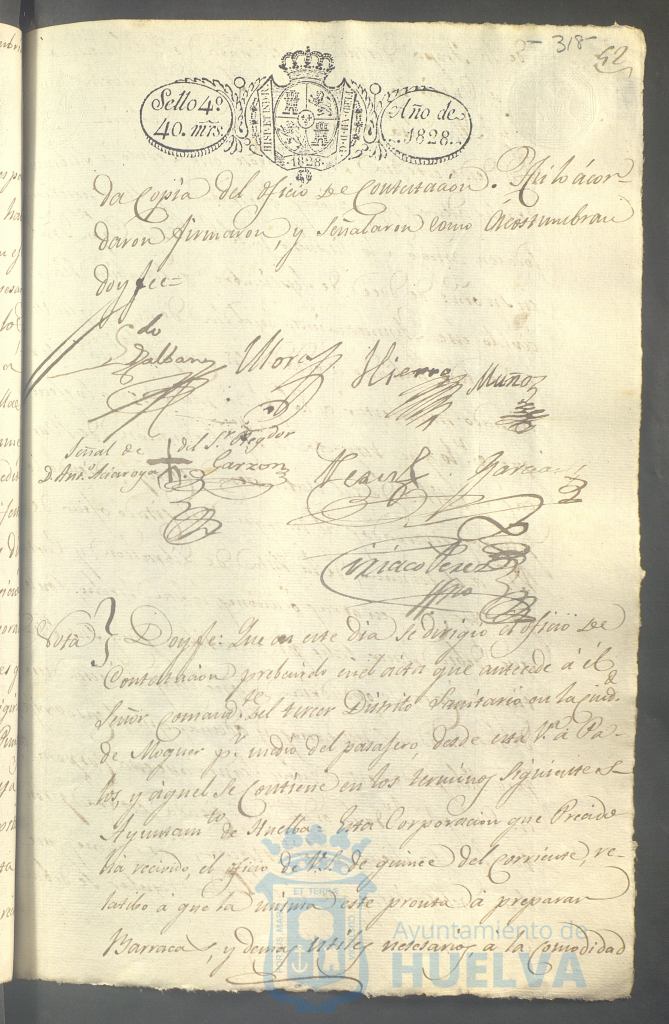 318
52
Sello 4º
40. mrs.
Año de
1828.
1828
da Copia del oficio de Contextacion. Asi lo acor-
daron firmaron, y señalaron como Acostumbran
doy fee=
Mora Hierro Muñoz
Señal de del Sr. Regdor
D. Antº Garzon
Garcia
Ciriaco Perez
Nota } Doy fe: Que en este dia se dirigió el oficio de
Contextacion prebenido en el acta que antecede á el
Señor Comandte del tercer Distrito Sanitario en la Ciudd
de Moguer pr medio del pasagero, desde esta Vª á Pa-
los, y aquel se contiene en los terminos siguientes
Ayuntamto de Huelba= Esta Corporacion que Precido
ha recivido, el oficio de V.S. de quince del corriente, re-
latibo a que la misma este pronta á preparar
Barracas, y demas utiles nesesarios, a la comodidad
Ayuntamiento de
HUELVA